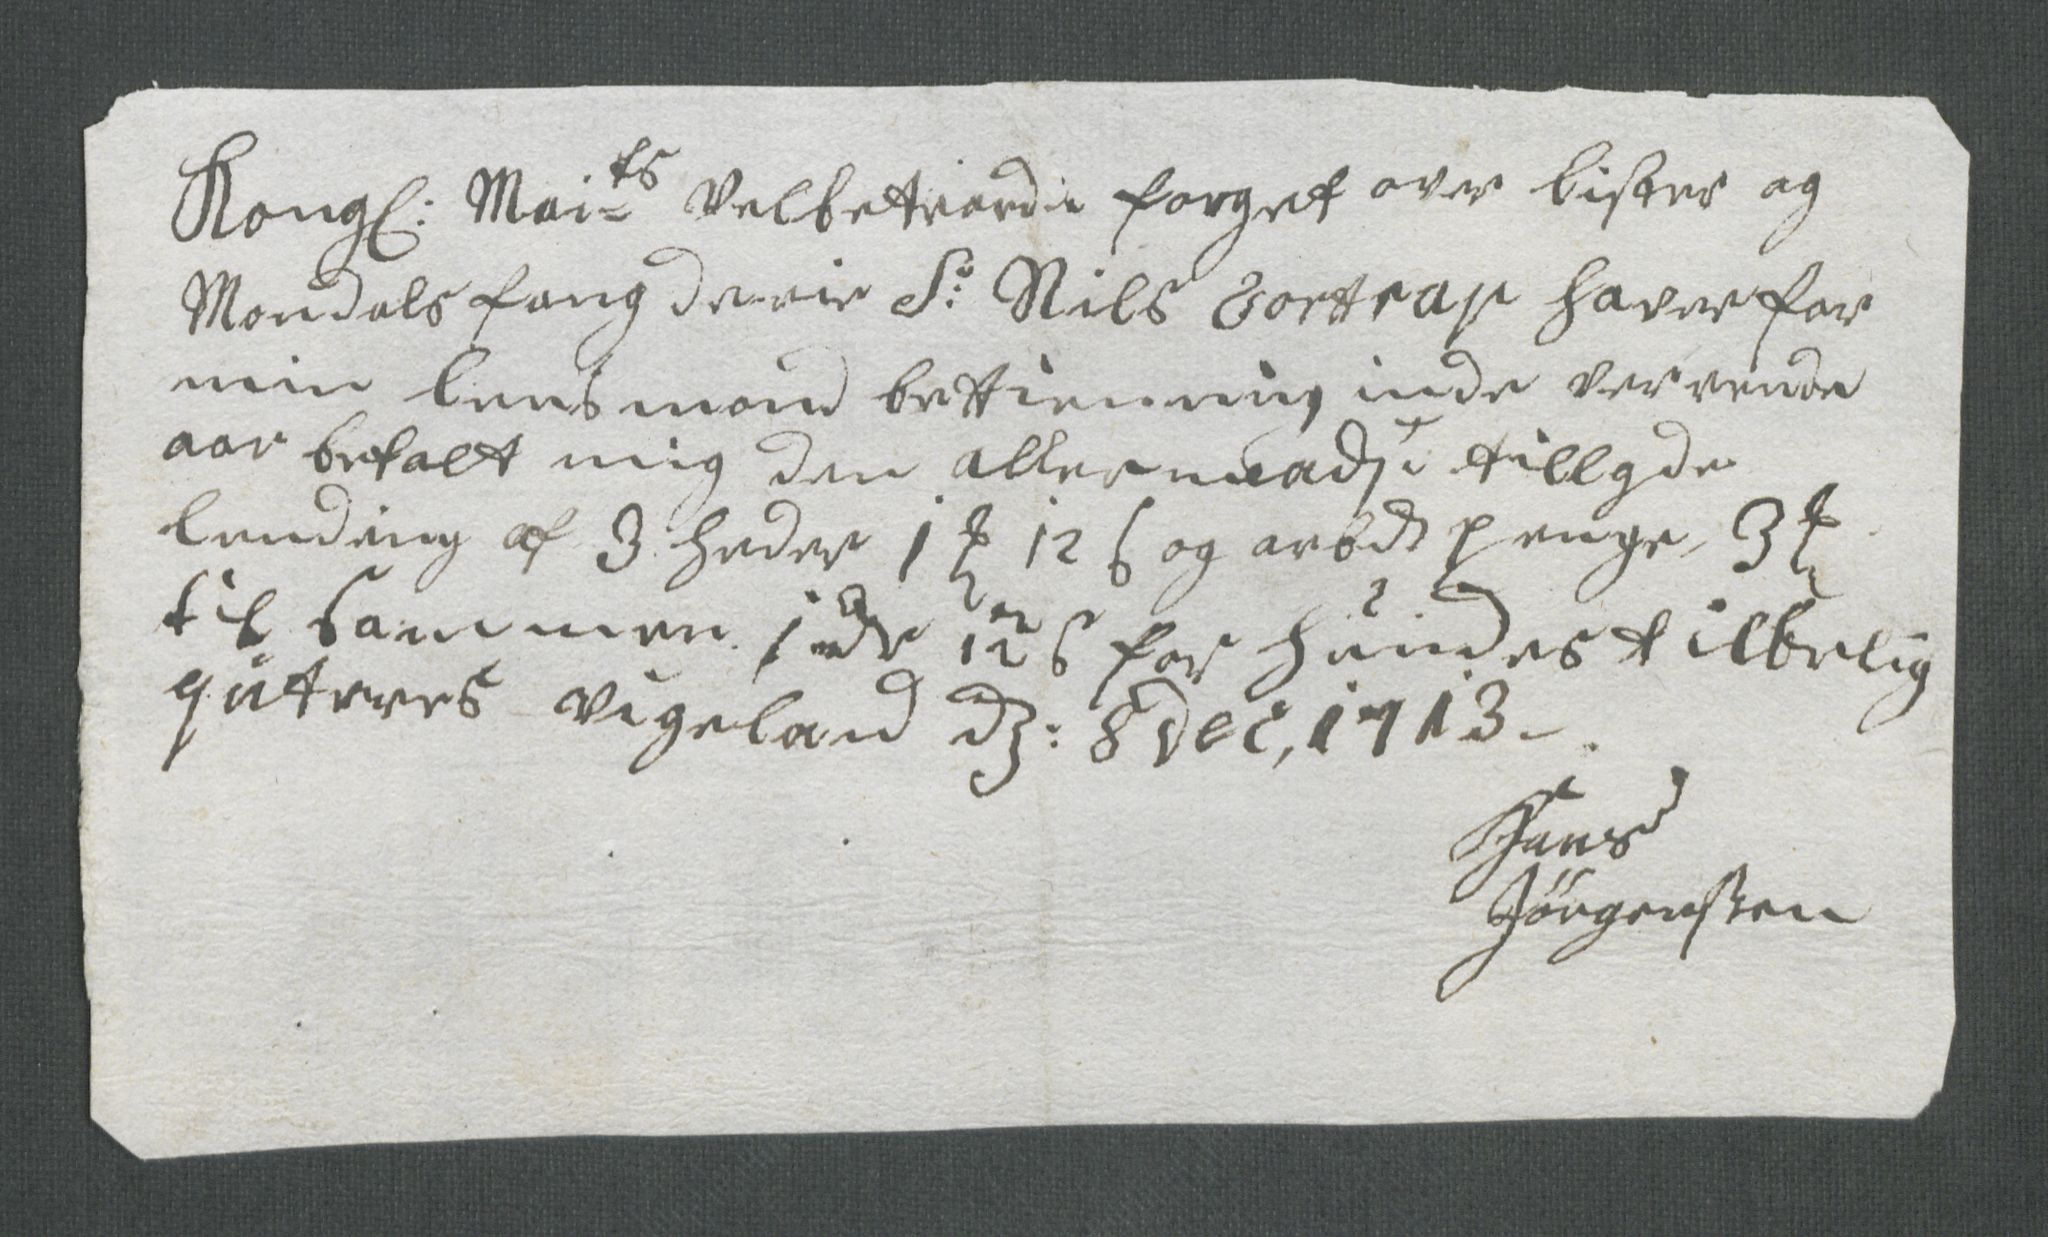 Kongl: Mai:ts Velbetrordi forget over lister og
Mondals fougderie Sr: Nils Tortrap haver for
min lensmond bettienning inde verrende
aar betalt mig den aller naadst tillgde
lending af 3 heder 1 12 s og arbds penge 3
til sammen 1 12 s for huildes tilbelig
quteres Vigeland d: 8 Dec, 1713
Hans
Jörgensen